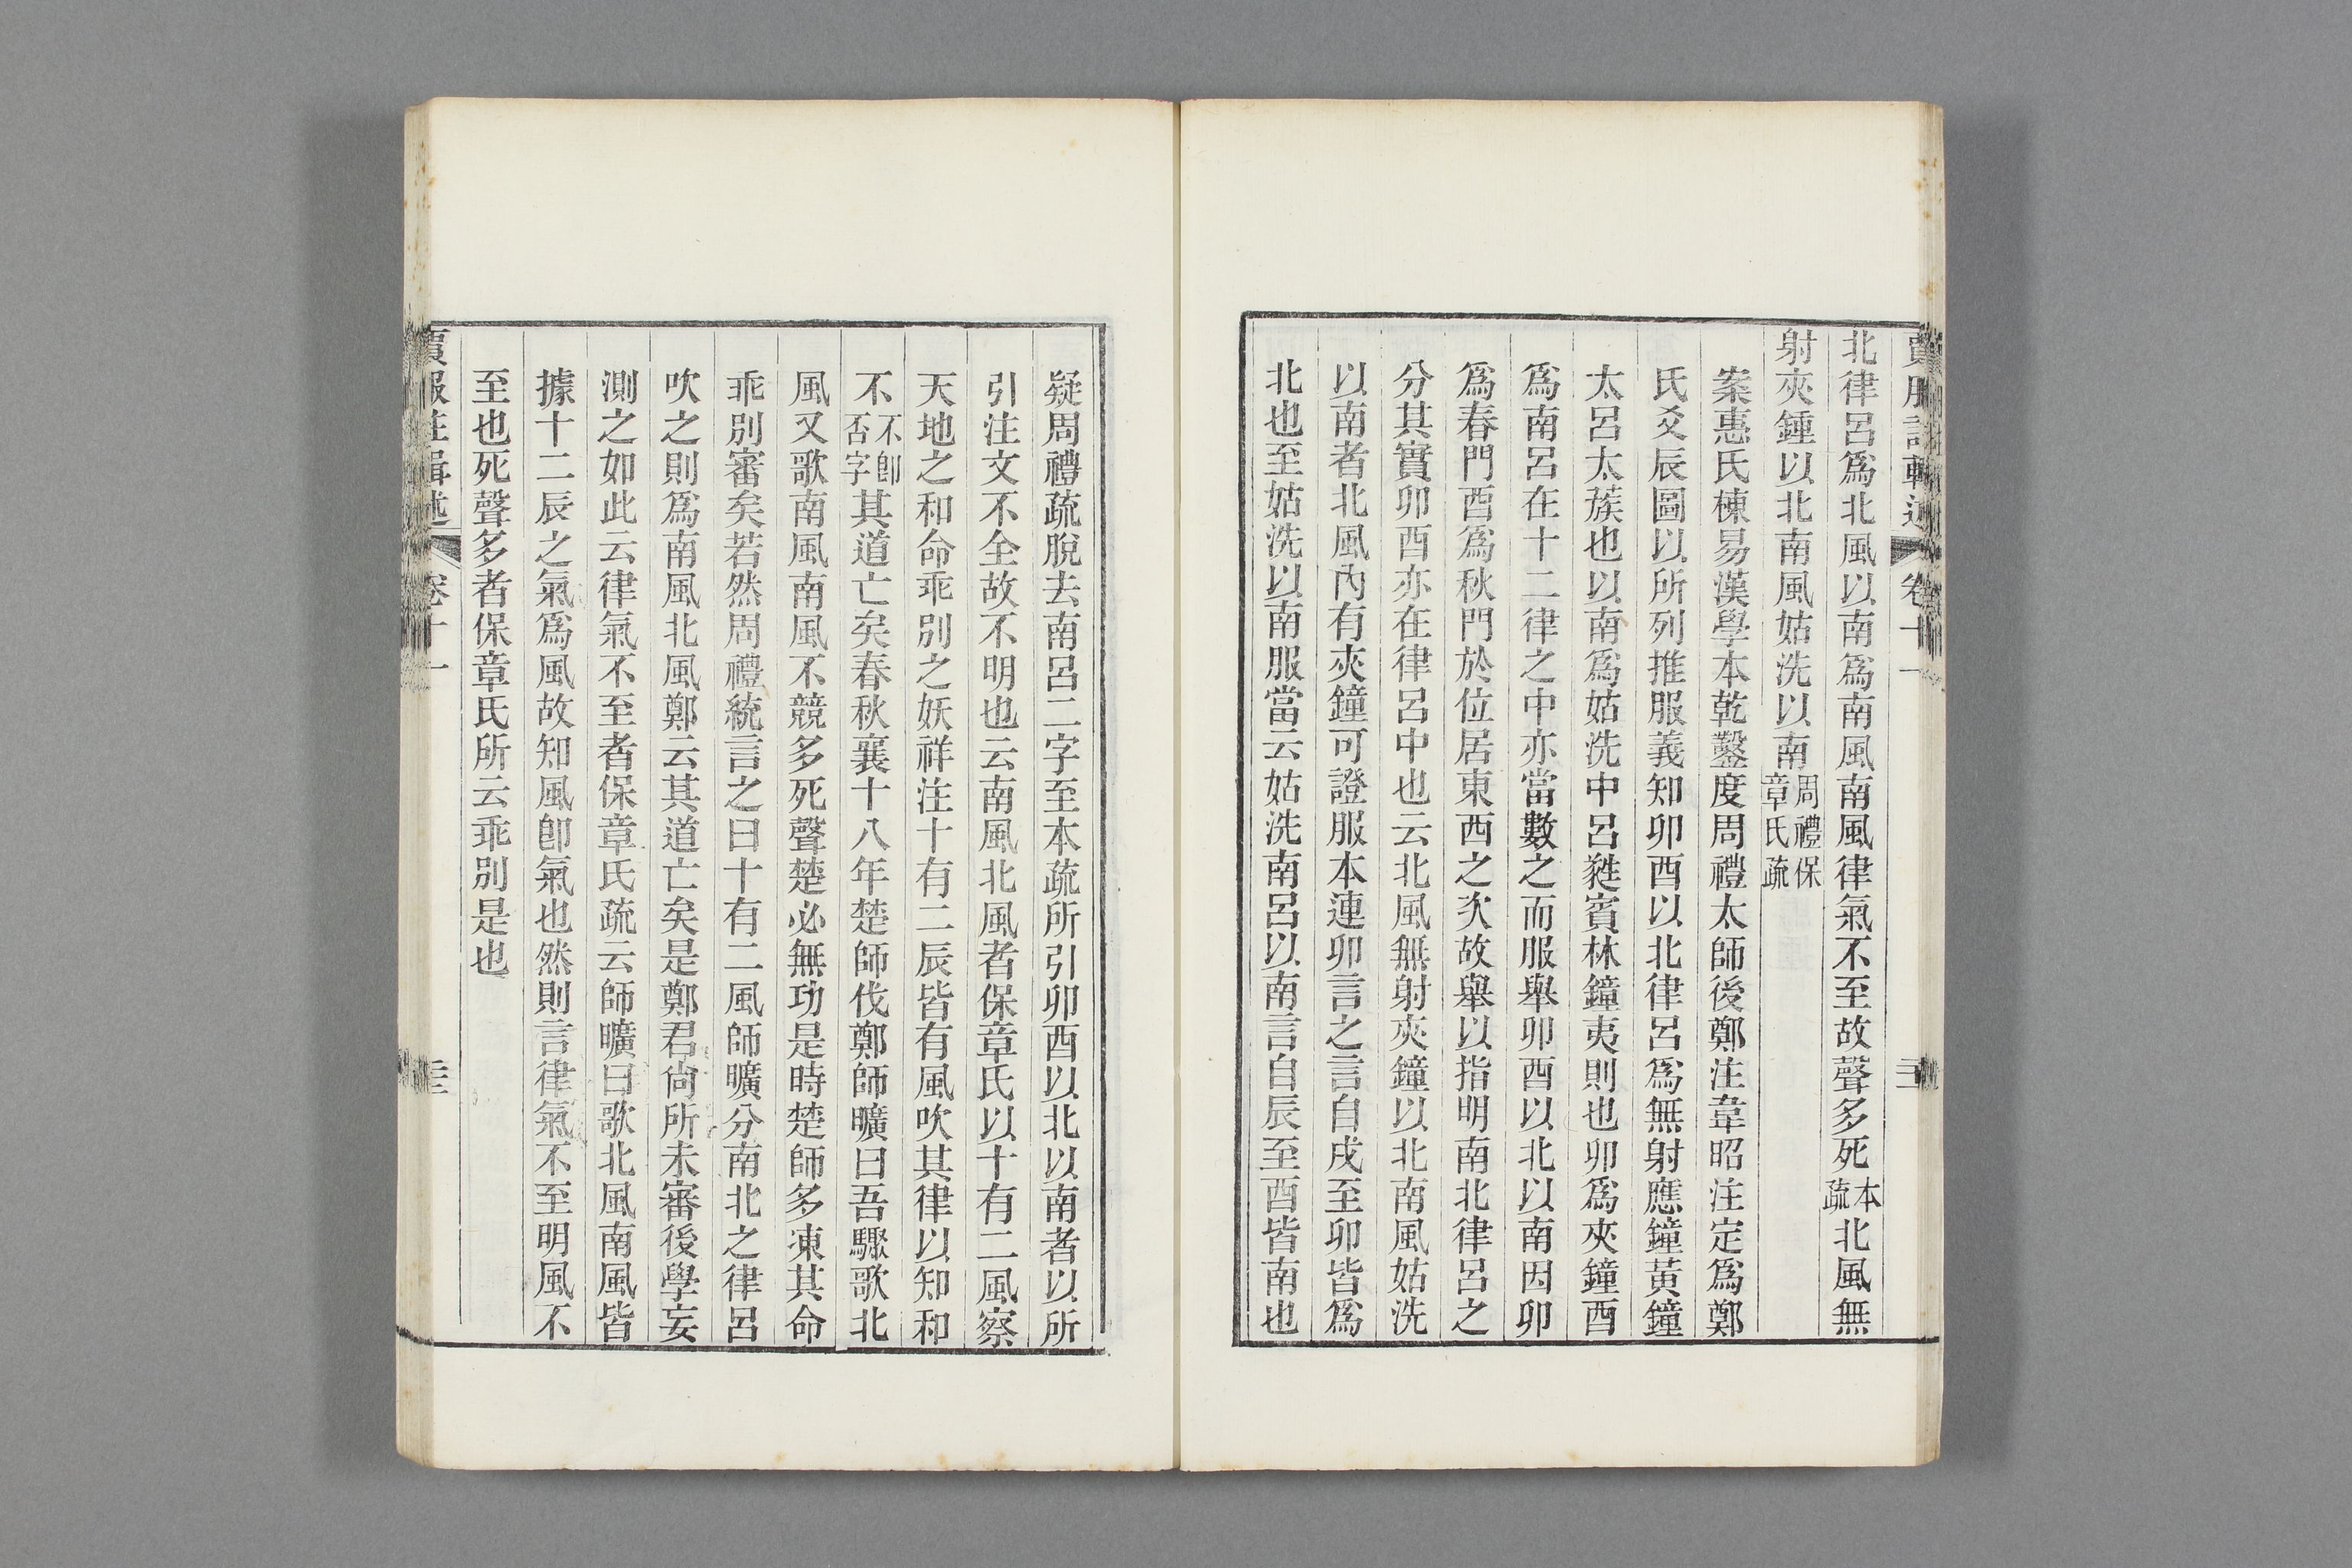 北律呂爲北風以南爲南風南風律氣不至故聲多死本疏北風無
射夾鍾以北南風姑洗以南周禮保章氏疏
案惠氏棟易漢學本乾鑿度周禮太師後鄭注韋昭注定爲鄭
氏爻辰圖以所列推服義知卯酉以北律呂爲無射應鐘黃鐘
太呂太蔟也以南爲姑洗中呂蕤賓林鐘夷則也卯爲夾鐘酉
爲南呂在十二律之中亦當數之而服舉卯酉以北以南因卯
爲春門酉爲秋門於位居東西之次故舉以指明南北律呂之
分其實卯酉亦在律呂中也云北風無射夾鐘以北南風姑洗
以南者北風內有夾鐘可證服本連卯言之言自戌至卯皆爲
北也至姑洗以南服當云姑洗南呂以南言自辰至酉皆南也
疑周禮疏脫去南呂二字至本疏所引卯酉以北以南者以所
引注文不全故不明也云南風北風者保章氏以十有二風察
天地之和命乖別之妖祥注十有二辰皆有風吹其律以知和
不不卽否字其道亡矣春秋襄十八年楚師伐鄭師曠曰吾驟歌北
風又歌南風南風不競多死聲楚必無功是時楚師多凍其命
乖別審矣若然周禮統言之曰十有二風師曠分南北之律呂
吹之則爲南風北風鄭云其道亡矣是鄭君尙所未審後學妄
測之如此云律氣不至者保章氏疏云師曠曰歌北風南風皆
據十二辰之氣爲風故知風卽氣也然則言律氣不至明風不
至也死聲多者保章氏所云乖別是也
賈服注輯述 卷十一